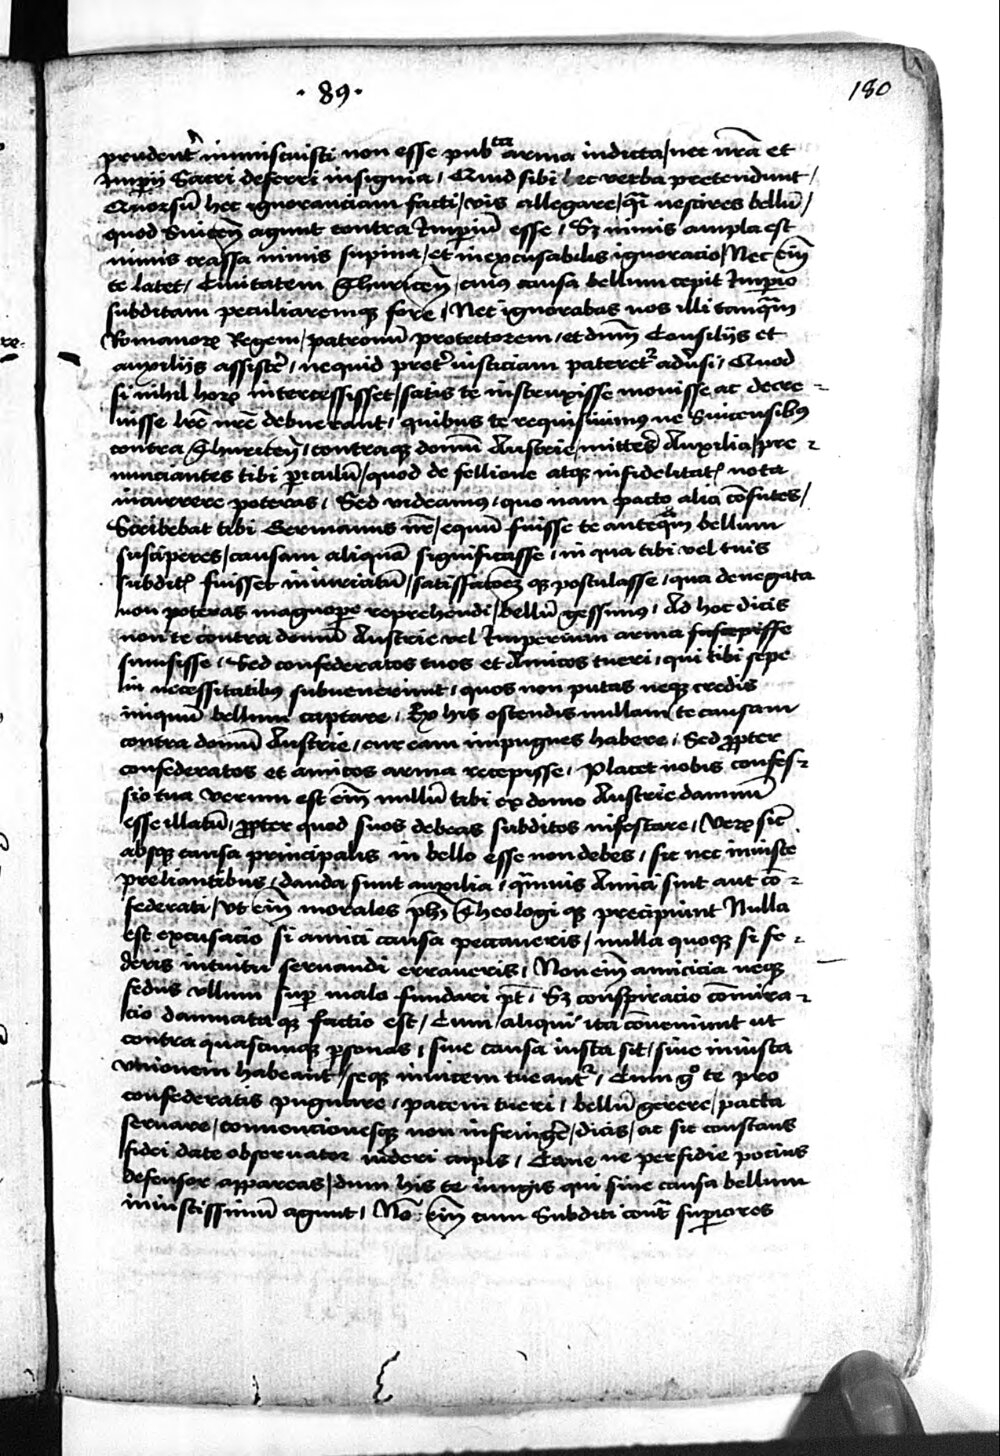 · 89 ·
180
prudent' inmiscuisti non esse pub^ca arma indicta / nec nrã et
Imperij Sacri deferri insignia / Quid sibi hec verba pretendunt /
Quorsũ hec ignoranciam facti / vis allegare / qi nescires bellũ /
quod Suiceñ agunt contra Imperiũ esse / Sz nimis ampla est
nimis crassa nimis supina / et inexcusabilis ignoracio / Nec eim̃
te latet / Ciuitatem Thuriceñ / cuius causa bellum cepit Imperio
subditam peculiaremqz fore / Nec ignorabas nos illi tanqm̃
Romanorz Regem / patronũ protectorem / et dnm̃ Consilijs et
auxilijs assistẽ / nequid pret' iusticiam pateret' adũsi / Quod
si nihil horz intercessisset / satis te instruxisse monisse ac decre-
uisse lrẽ nrẽ debuerant / quibus te requisiuimus ne Suicensibus
contra Thuriceñ / contraqz domũ Austrie mittes Auxilia / pre-
nunciantes tibi piculũ / quod de fellione atqz infidelitat' nota
incurrere poteras / Sed videamus / quo nam pacto alia cõfutes /
Scribebat tibi Germanus nr / equũ fuisse te anteqm̃ bellum
susciperes / causam aliquã significasse / in qua tibi vel tuis
subdit' fuisset iniuriatũ / satisfactõez qz postulasse / qua denegata
non poteras magnopẽ reprehendi / bellũ gessimus / Ad hoc dicis
non te contra domũ Austrie vel Imperium arma suscepisse
sumsisse / Sed confederatos tuos et Amicos tueri / qui tibi sepe
in necessitatibus subuenerunt / quos non putas neqz credis
iniquũ bellum captare / Ex his ostendis nullam te causam
contra domũ Austrie / cur eam impugnes habere / Sed ppter
confederatos et amicos arma recepisse / Placet nobis confes-
sio tua verum est eim̃ nullũ tibi ex domo Austrie damnũ
esse illatũ / ppter quod suos debeas subditos infestare / Verz sic
absqz causa principalis in bello esse non debes / sic nec iniuste
preliantibus / danda sunt auxilia / qmuis Amici sint aut cõ-
federati / Vt eim̃ morales ph̃i Theologi qz precipiunt Nulla
est excusacio si amici causa peccaueris / nulla quoqz si fe-
deris intuitu seruandi erraueris / Non eim̃ amicicia neqz
fedus vllum sup malo fundari pt̃ / Sz conspiracio cõiura-
cio damnata qz factio est / Cum aliqui ita cõueniunt ut
contra quascunqz psonas / siue causa iusta sit / siue iniusta
vnionem habeant / seqz inuicem tueant' / Cum go te pro
confederatis pugnare / pacem tueri / bellũ gerere / pacta
seruare / conuencionesqz non infringẽ / dicis / ac sic constans
fidei date obseruator videri cupis / Caue ne perfidie pocius
defensor appareas / dum his te iungis qui sine causa bellum
iniustissimũ agunt / Nõ eim̃ cum Subditi cont' supiores